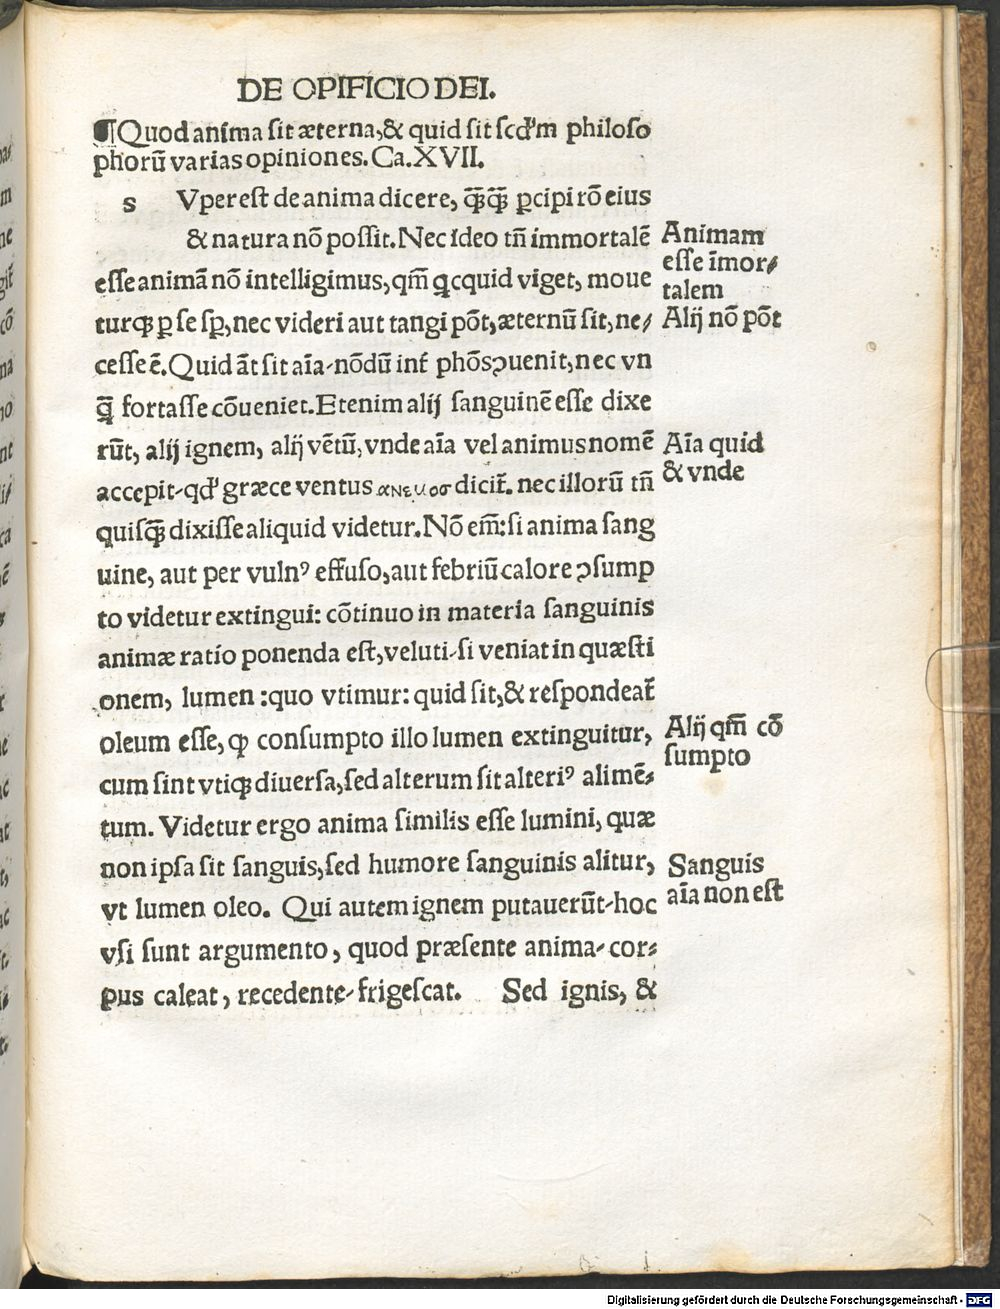 DE OPIFICIO DEI.
¶Quod anima sit æterna,& quid sit scd'm philoso
phorū varias opiniones. Ca.XVII.
s Vperest de anima dicere, q̄q̄ ꝑcipi rō eius
& natura nō possit. Nec ideo tñ immortalē
esse animā nō intelligimus, qm̄ qcquid viget, moue
turqꝫ ꝑ se sꝑ, nec videri aut tangi pōt, æternū sit, ne⸗
cesse ē. Quid āt sit aīa⸗nōdū int̄ phōs ꝯuenit, nec vn
q̄ fortasse cōueniet. Etenim alij sanguinē esse dixe
rūt, alij ignem, alij vētū, vnde aīa vel animus nomē
accepit⸗qd' græce ventus ανεμοσ dicit̄. nec illorū tñ
quisq̄ dixisse aliquid videtur. Nō em̄: si anima sang
uine, aut per vulnꝰ effuso, aut febriū calore ꝯsump
to videtur extingui: cōtinuo in materia sanguinis
animæ ratio ponenda est, veluti⸗si veniat in quæsti
onem, lumen :quo vtimur: quid sit,& respondeat̄
oleum esse, ꝙ consumpto illo lumen extinguitur,
cum sint vtiqꝫ diuersa, sed alterum sit alteriꝰ alimē⸗
tum. Videtur ergo anima similis esse lumini, quæ
non ipsa sit sanguis, sed humore sanguinis alitur,
vt lumen oleo. Qui autem ignem putauerūt⸗hoc
vsi sunt argumento, quod præsente anima⸗cor⸗
pus caleat, recedente⸗frigescat. Sed ignis, &
Animam
esse īmor⸗
talem
Alij nō pōt
Aīa quid
& vnde
Alij qm̄ cō
sumpto
Sanguis
aīa non est
Digitalisierung gefördert durch die Deutsche Forschungsgemeinschaft - DFG